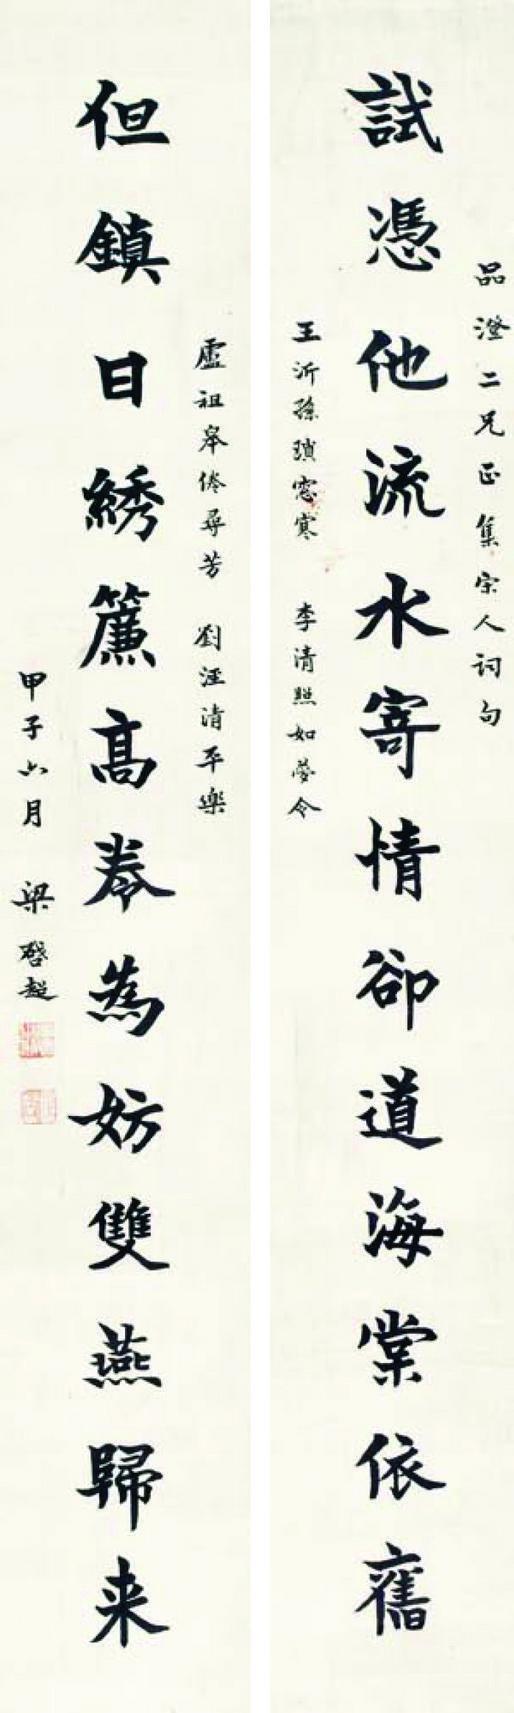 品澄二兄正集宋人词句
試憑他流水寄情卻道海棠依舊
王沂孫瑣窓寒 李清照如夢令
盧祖皋倦尋芳 劉涇清平樂
但鎮日繡簾高卷為妨雙燕歸来
甲子六月 梁啓超